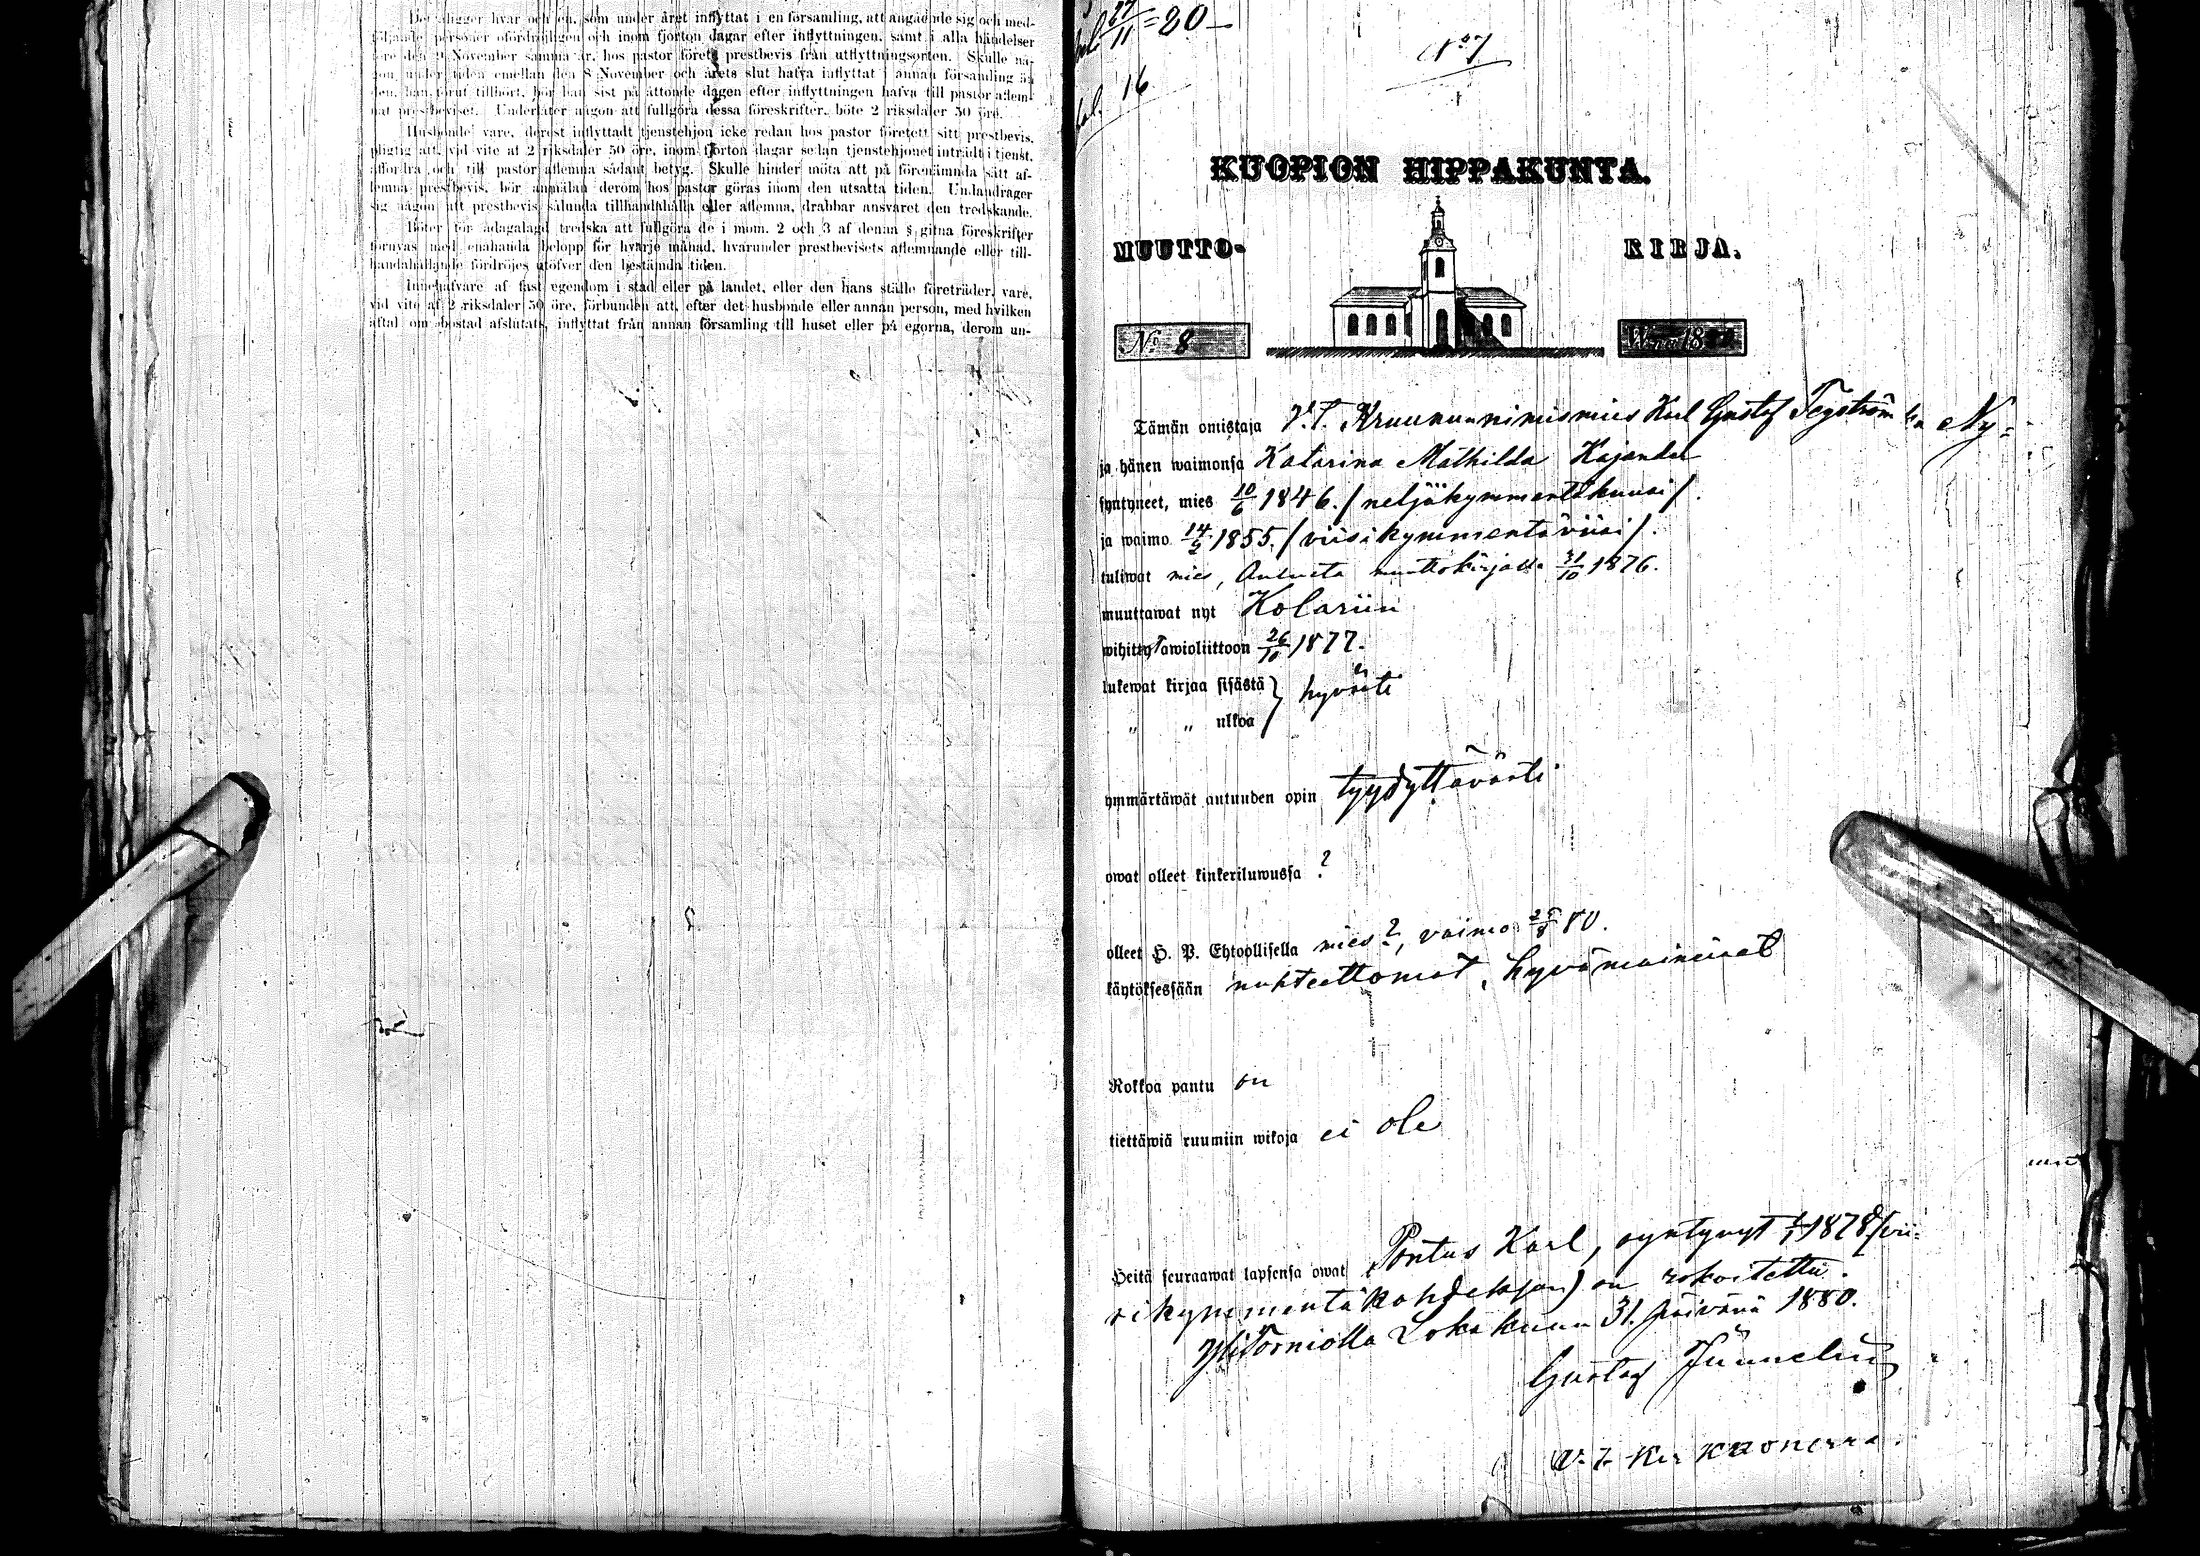 Det åligger hvar och en, som under året inflyttat i en församling, att angående sig och med-
följande personer ofördröjligen och inom fjorton dagar efter inflyttningen, samt i alla händelser
före den 9 November samma år, hos pastor förete prestbevis från utflyttningsorten. Skulle nå-
gon under tiden emellan den 8 November och årets slut hafva inflyttat i annan församling än
den, han förut tillhört, bör han sist på åttonde dagen efter inflyttningen hafva till pastor aflem-
nat prestbeviset. Underlåter någon att fullgöra dessa föreskrifter, böte 2 riksdaler 50 öre.
Husbonde vare, derest inflyttadt tjenstehjon icke redan hos pastor företett sitt prestbevis,
pligtig att, vid vite af 2 riksdaler 50 öre, inom fjorton dagar sedan tjenstehjonet inträdt i tjenst,
affordra och till pastor aflemna sådant betyg. Skulle hinder möta att på förenämnda sätt af-
lemna prestbevis, bör anmälan derom hos pastor göras inom den utsatta tiden. Undandrager
sig någon att prestbevis sålunda tillhandahålla eller aflemna, drabbar ansvaret den tredskande.
Böter för ådagalagd tredska att fullgöra de i mom. 2 och 3 af denna § gifna föreskrifter
förnyas med enahanda belopp för hvarje månad, hvarunder prestbevisets aflemnande eller till-
handahållande fördröjes utöfver den bestämda tiden.
Innehafvare af fast egendom i stad eller på landet, eller den hans ställe företräder, vare,
vid vite af 2 riksdaler 50 öre, förbunden att, efter det husbonde eller annan person, med hvilken
aftal om bostad afslutats, inflyttat från annan församling till huset eller på egorna, derom un-
27/11 = 80
No 7
16
KUOPION HIPPAKUNTA.
MUUTTO- KIRJA.
No 8 W:na 18
Tämän omistaja V.T. Kruununnimismies Karl Gustaf Tegström
ja hänen waimonsa Katarina Mathilda Kajander
syntyneet, mies 10/6 1846. / neljäkymmentäkuusi /.
ja waimo 14/5 1855. / viisikymmentäviisi /.
tuliwat mies, Oulusta muuttokirjalla 31/10 1876.
muuttawat nyt Kolariin
wihitty awioliittoon 26/10 1877.
lukewat kirjaa sisästä } hyvästi
„ „ ulkoa
ymmärtäwät autuuden opin tyydyttävästi
owat olleet kinkeriluwussa ?
olleet H. P. Ehtoollisella mies ?, vaimo 25/8 80.
käytöksessään nuhteettomat, hyvämainiset
Rokkoa pantu on
tiettäwiä ruumiin wikoja ei ole
Heitä seuraawat lapsensa owat Pontus Karl, syntynyt 1878 /sei-
sikymmentäkahdeksan) on rokoitettu.
YliTorniolla Lokakuun 31. päivänä 1880.
Gustaf
V. T. Kirkkoherra.